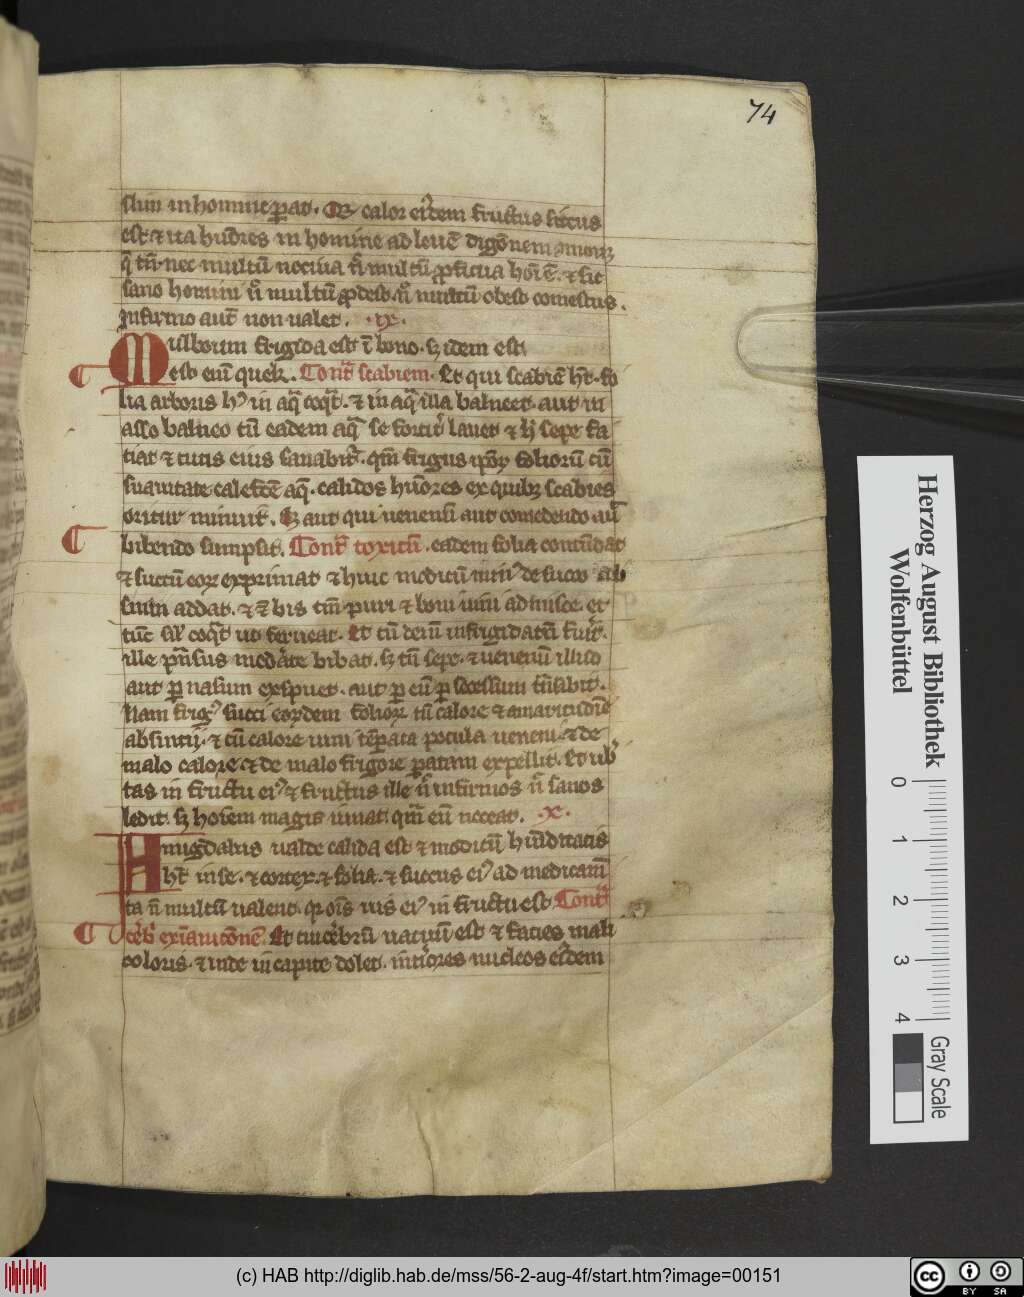 74
slim in homine parat. Qz calor eiusdem fructus siccus
est. & ita humores in homine ad leuem digestionem
tamen nec multum nociua nec multum proficua homini est. & sic
sano homini non multum prodest. nec multum obest comestus.
Infirmo aut non ualet. .ix.
Mulborum frigida est in bono. sed idem est
Contra scabiem. Et qui scabiem habet. fo
lia arboris in aqua coquat. & in aqua illa balneet. aut in
asso balneo cum eadem aqua se lauet & sepe fa
ciat & cutis eius sanabitur. frigus foliorum cum
suauitate calidos humores ex quibus scabies
oritur minuit. aut qui uenenum aut comedendo aut
bibendo sumpsit. Contra toxicum. eadem folia contundat
& succum eorum exprimat & huic modicum minus de succo ab
sinthii addat. & bis tantum puri & boni uini admisceat et
tunc simul coquat ut ferueat. Et cum deinde infrigidatum fuerit.
ille pransus moderate bibat. sed tamen sepe. & uenenum illud
aut per nasum exspuet. aut per eum per secessum transibit.
Nam frigus succi eorundem foliorum cum calore & amaritudine
absintii. & cum calore uini temperata pocula ueneni. & de
malo calore & de malo frigore paratum expellit.
tas in fructu eius & fructus ille nec infirmos nec sanos
ledit. sed hominem magis iuuat. quam eum noceat. .x.
Amigdalus ualde calida est & modicum humiditatis
habet in se. & cortex. & folia. & succus eius ad medicamen
ta non multum ualent. quia omnis uis eius in fructu est. Contra
Et cui cerebrum uacuum est & facies mali
coloris. & inde in capite dolet. interiores nucleos eiusdem
Herzog August Bibliothek
Wolfenbüttel
0 1 2 3 4
Gray Scale
(c) HAB http://diglib.hab.de/mss/56-2-aug-4f/start.htm?image=00151
cc BY SA